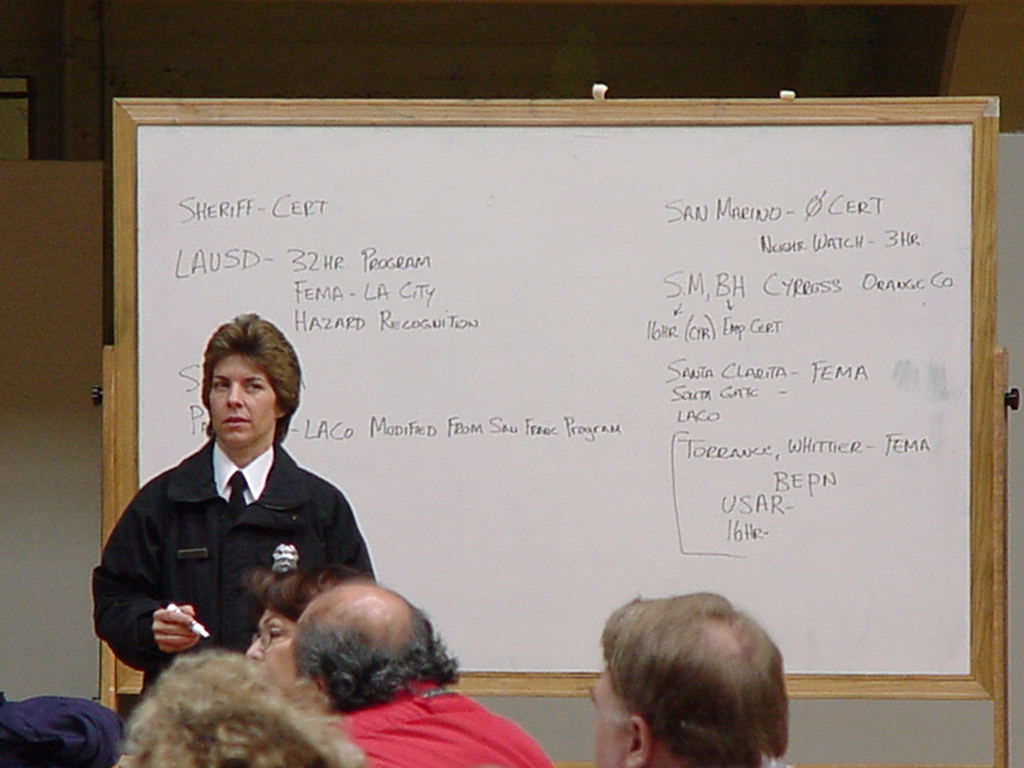 SHERIFF - CERT
LAUSD - 32HR PROGRAM
FEMA - LA CITY
HAZARD RECOGNITION
- LACO MODIFIED FROM SAN FRANC PROGRAM
SAN MARINO - Ø CERT
NEIGHR. WATCH - 3HR
S.M, BH CYPRESS ORANGE CO
16HR (CPR) EMP CERT
SANTA CLARITA - FEMA
SOUTH GATE -
LACO
TORRANCE, WHITTIER - FEMA
BEPN
USAR -
16HR -